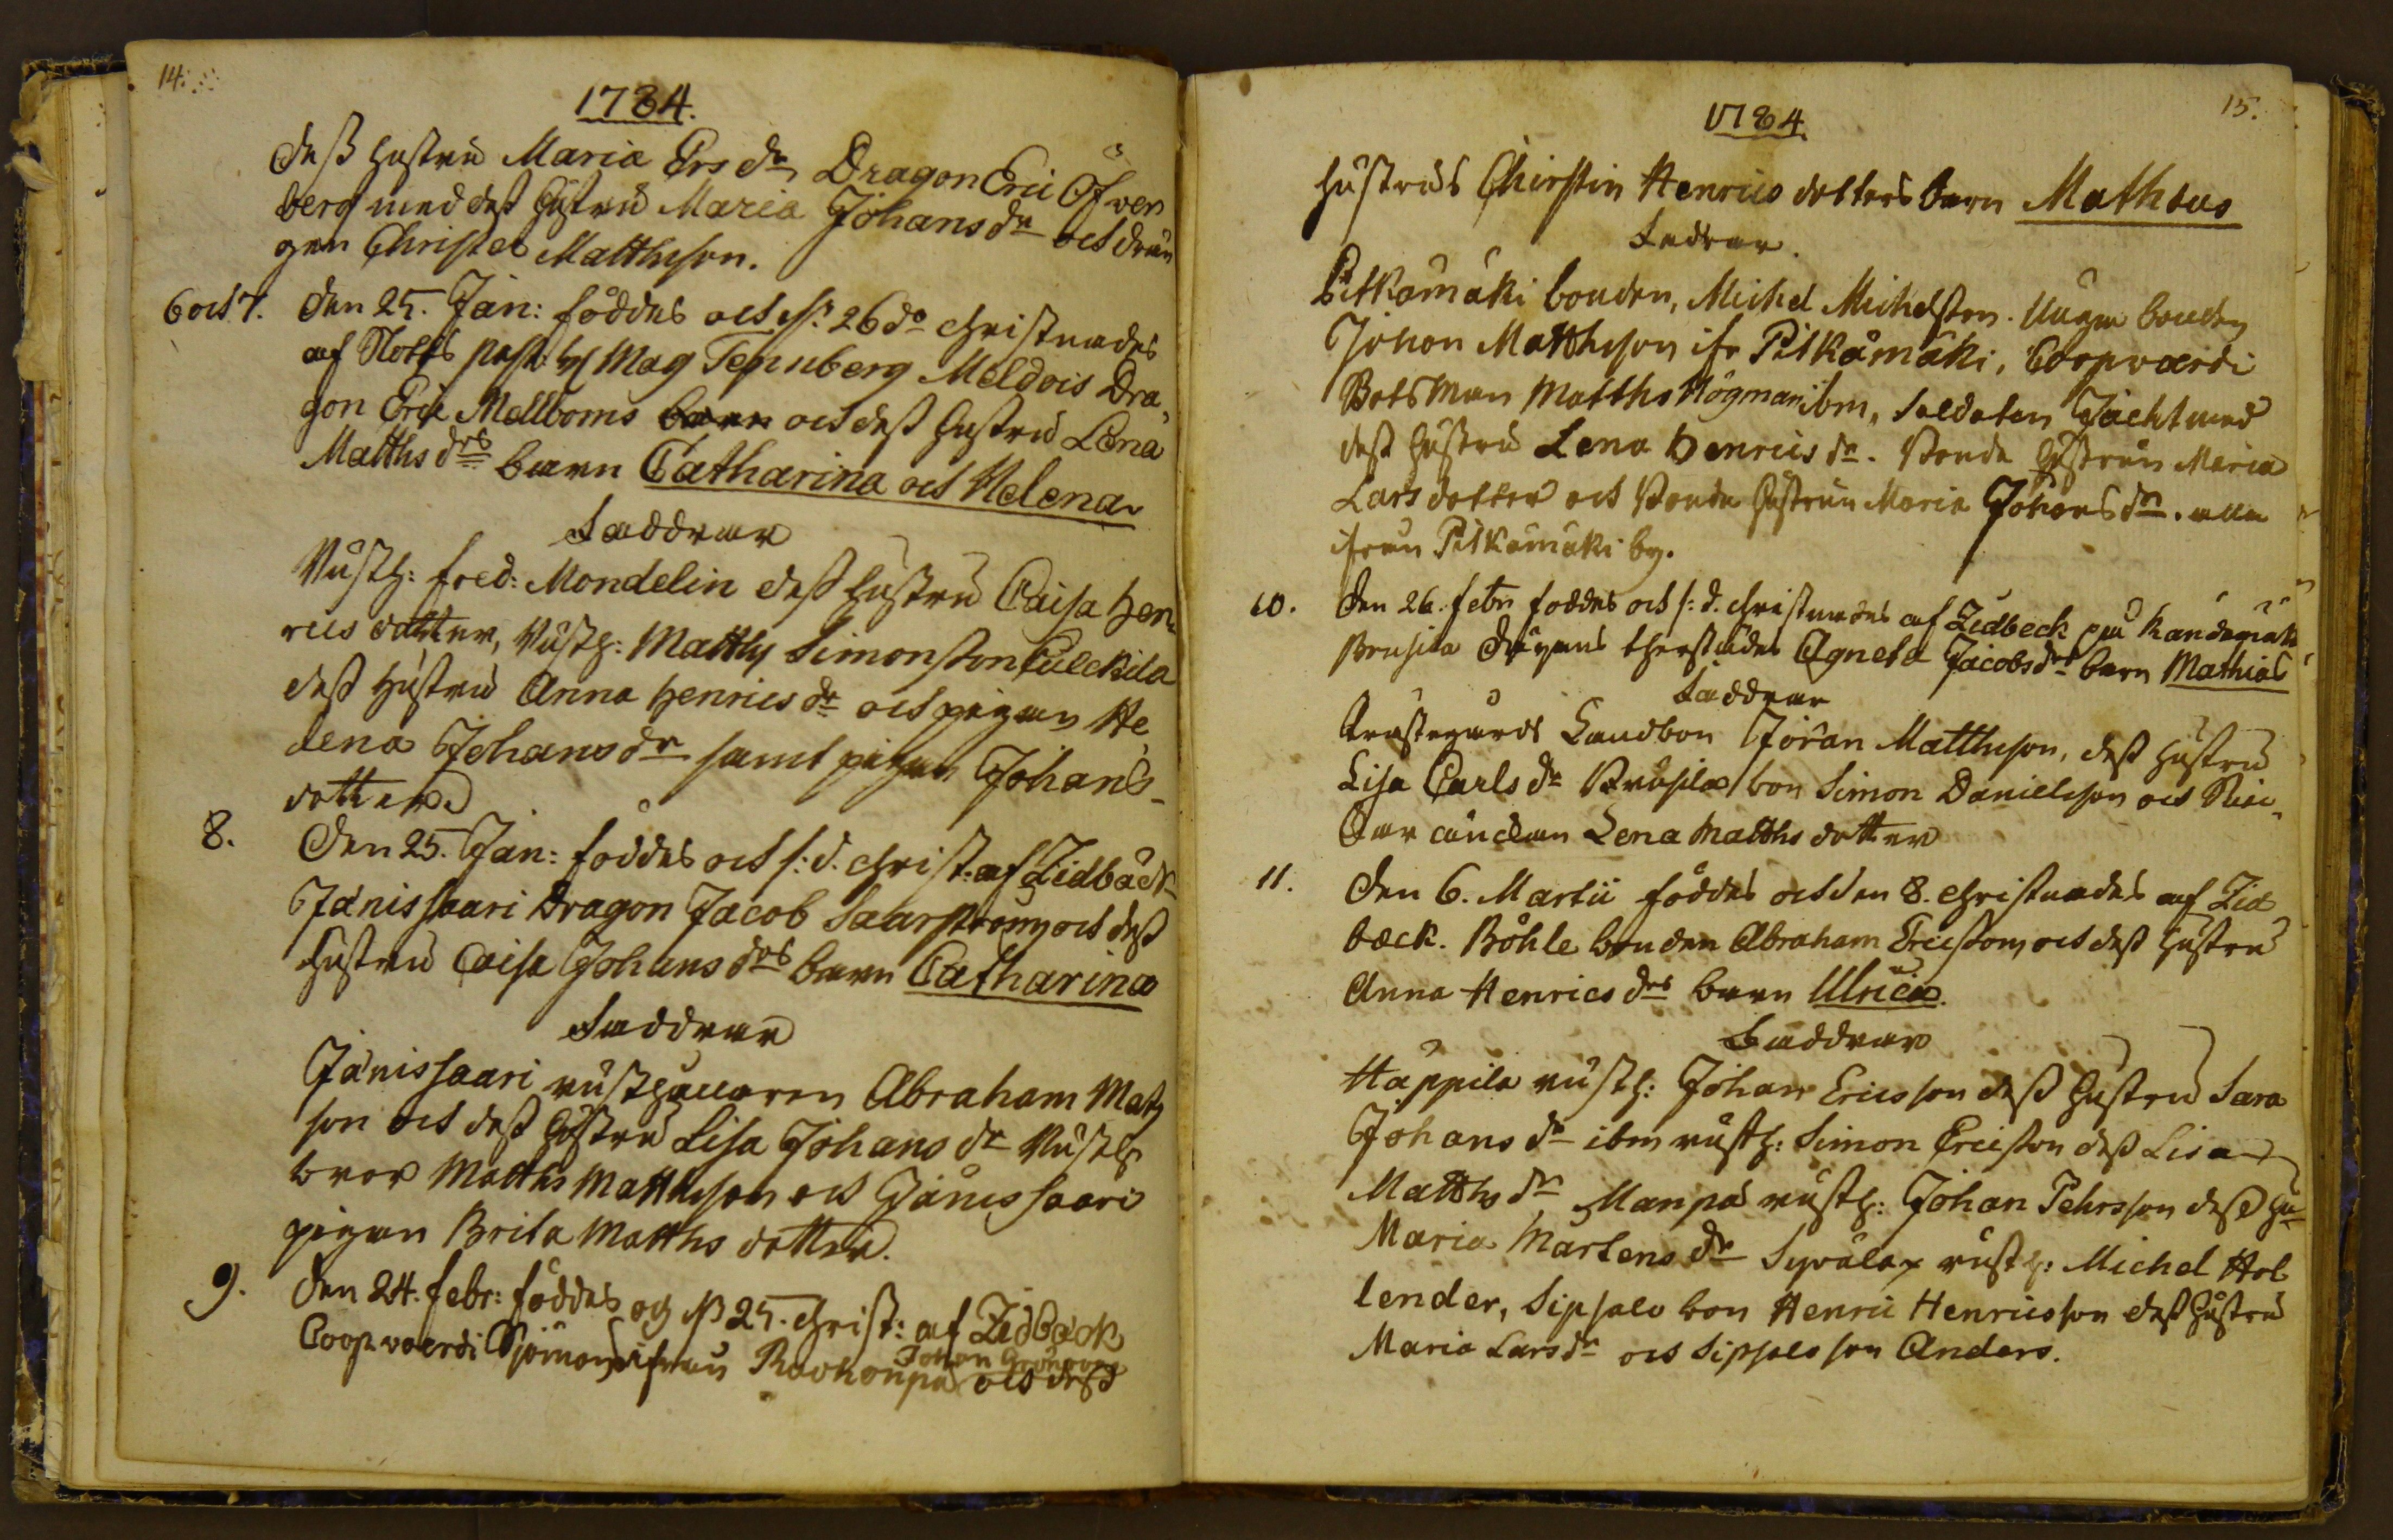 14.
1784.
dess hustru Maria Ers dr, Dragon Eric Öfver
berg med dess hustru Maria Johans dr och drän
gen Christer Matthsson.
6 och 7. den 25. Jan: föddes och d. 26 do christnades
af Slotts past: H Mag Tennberg Meldois Dra,
gon Eric Mellboms barn och dess hustru Lena
Matths drs barn Catharina och Helena
Faddrar
Rusth: Fred: Mondelin dess hustru Caisa Hen,
rics dotter, Rusth: Matths Simonsson Pulckila
dess hustru Anna Henrics dr och pigan He,
lena Johans dr samt pigan Johans-
dotter
8. Den 25. Jan: föddes och s: d. christ: af Zidbäck
Jänissaari Dragon Jacob Saarström och dess
hustru Caisa Johans drs barn Catharina
Faddrar
Jänissaari rusthållaren Abraham Mats
son och dess hustru Lisa Johans dr Rusth
bror Matths Matthsson och Jänissaari
pigan Brita Matths dotter.
9. den 24. febr: föddes och d 25. christ: af Zidbäck
Johan Grönberg
Coopvaerdi Sjöman ifrån och dess
15.
1784
hustrus Chirstin Henrics dotters barn Mathæus
Fadrar.
Pitkämäki bonden, Michel Michelsson. Unga bonden
Johan Matthsson ifr Pitkämäki, Coopvaerdi
Botsman Matths Högman ibm, soldaten Jächt med
dess hustru Lena Henrics dr. Bonde hustrun Maria
Lars dotter och Bonde hustrun Maria Johans dr. alla
ifrån Pitkämäki by.
10. Den 26. febr föddes och s: d. christnades af Zidbeck på
Brusila Agneta Jacobs drs barn Mathias
Faddrar
Landbon Jöran Matthsson, dess hustru
Lisa Carls dr Brusila bon Simon Danielsson och
Lena Matths dotter
11. Den 6. Martii föddes och den 8. christnades af Zid
bæck. Böhle bonden Abraham Ericsson, och dess hustru
Anna Henrics drs barn Ulrica.
Faddrar
Häppilä rusth: Johan Ericsson dess hustru Sara
Johans dr ibm rusth: Simon Ericsson dess Lisa
Matths dr Manpä rusth: Johan Pehrsson dess hu-
Maria Mårtens dr Syvälax rusth: Michel Hol
lender, Sipsalo bon Henric Henricsson dess hustru
Maria Lars dr och Sipsalo son Anders.